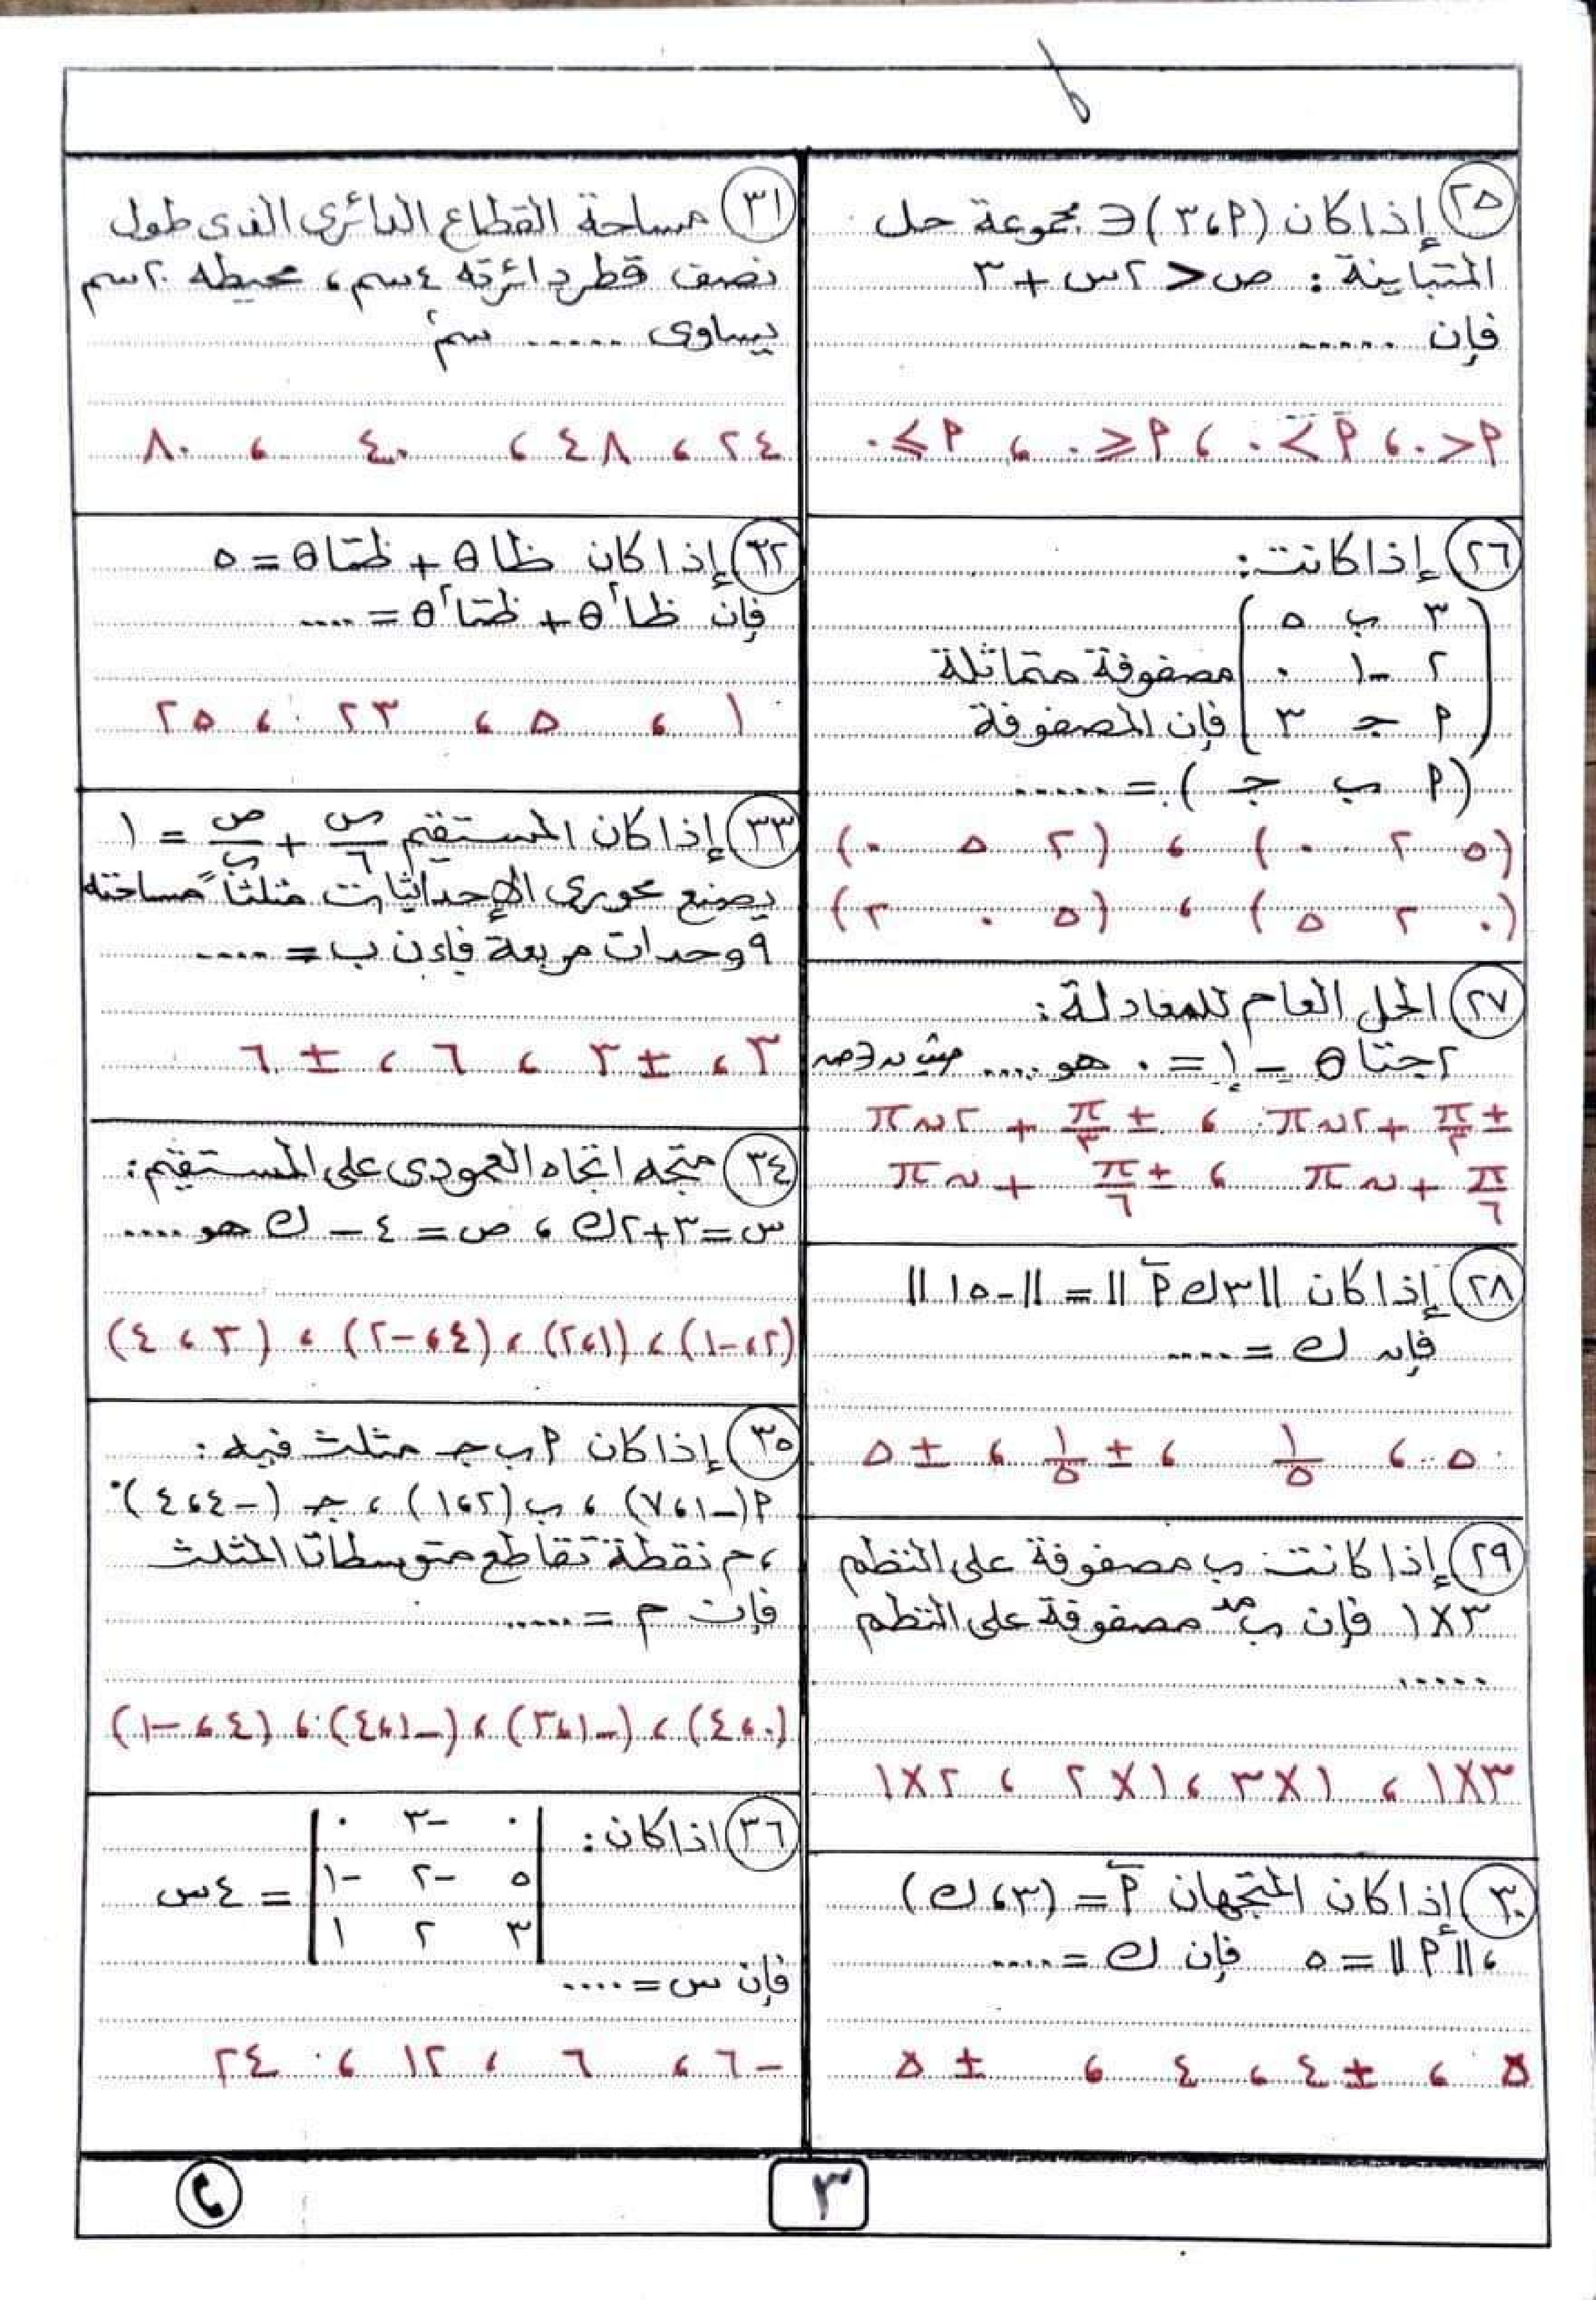 ٢٥ إذا كان (٣،٢) ∈ مجموعة حل
المتباينة : ص < ٢س + ٣
فإن ......
٢ > ٠ ، ٢ < ٠ ، ٢ ≥ ٠ ، ٢ ≤ ٠
٢٦ إذا كانت :
٣ ب ٥
٢ -١ ٠ مصفوفة متماثلة
٢ جـ ٣ فإن المصفوفة
(٢ ب جـ) = ......
(٥ ٢ ٠) ، (٢ ٥ ٠)
(٠ ٢ ٥) ، (٥ ٠ ٢)
٢٧ الحل العام للمعادلة :
٢جتا θ - ١ = ٠ هو .... حيث ن ∈ ص
± π/٣ + ٢ن π ، ± π/٣ + ٢ن π
π/٦ + ن π ، ± π/٦ + ن π
٢٨ إذا كان ||٣ك أ|| = ||-١٥ ||
فإن ك = ....
٥ ، ١/٥ ، ± ١/٥ ، ± ٥
٢٩ إذا كانت ب مصفوفة على النظم
٣×١ فإن بمد مصفوفة على النظم
.....
٣×١ ، ١×٣ ، ١×٢ ، ٢×١
٣٠ إذا كان المتجهان أ = (٣، ك)
، ||أ|| = ٥ فإن ك = .....
٥ ، ± ٤ ، ٤ ، ± ٥
٣١ مساحة القطاع الدائري الذى طول
نصف قطر دائرته ٤سم، محيطه ٢٠سم
يساوى ...... سم٢
٢٤ ، ٤٨ ، ٤٠ ، ٨٠
٣٢ إذا كان ظا θ + ظتا θ = ٥
فإن ظا٢ θ + ظتا٢ θ = ....
١ ، ٥ ، ٢٣ ، ٢٥
٣٣ إذا كان المستقيم س/٦ + ص/ب = ١
يصنع محورى الإحداثيات مثلثاً مساحته
٩ وحدات مربعة فإن ب = ....
٣ ، ± ٣ ، ٦ ، ± ٦
٣٤ متجه اتجاه العمودى على المستقيم :
س = ٣ + ٢ك ، ص = ٤ - ك هو ....
(٢، -١) ، (١، ٢) ، (٤، -٢) ، (٣، ٤)
٣٥ إذا كان أ ب جـ مثلث فيه :
أ(-١، ٧) ، ب(٢، ١) ، جـ (-٤، ٤)
، م نقطة تقاطع متوسطات المثلث
فإن م = .....
(٠، ٤) ، (-١، ٣) ، (-١، ٤) ، (٤، -١)
٣٦ اذا كان :
٠ -٣ ٠
٥ -٢ -١ = ٤س
٣ ٢ ١
فإن س = ....
-٦ ، ٦ ، ١٢ ، ٢٤
٣